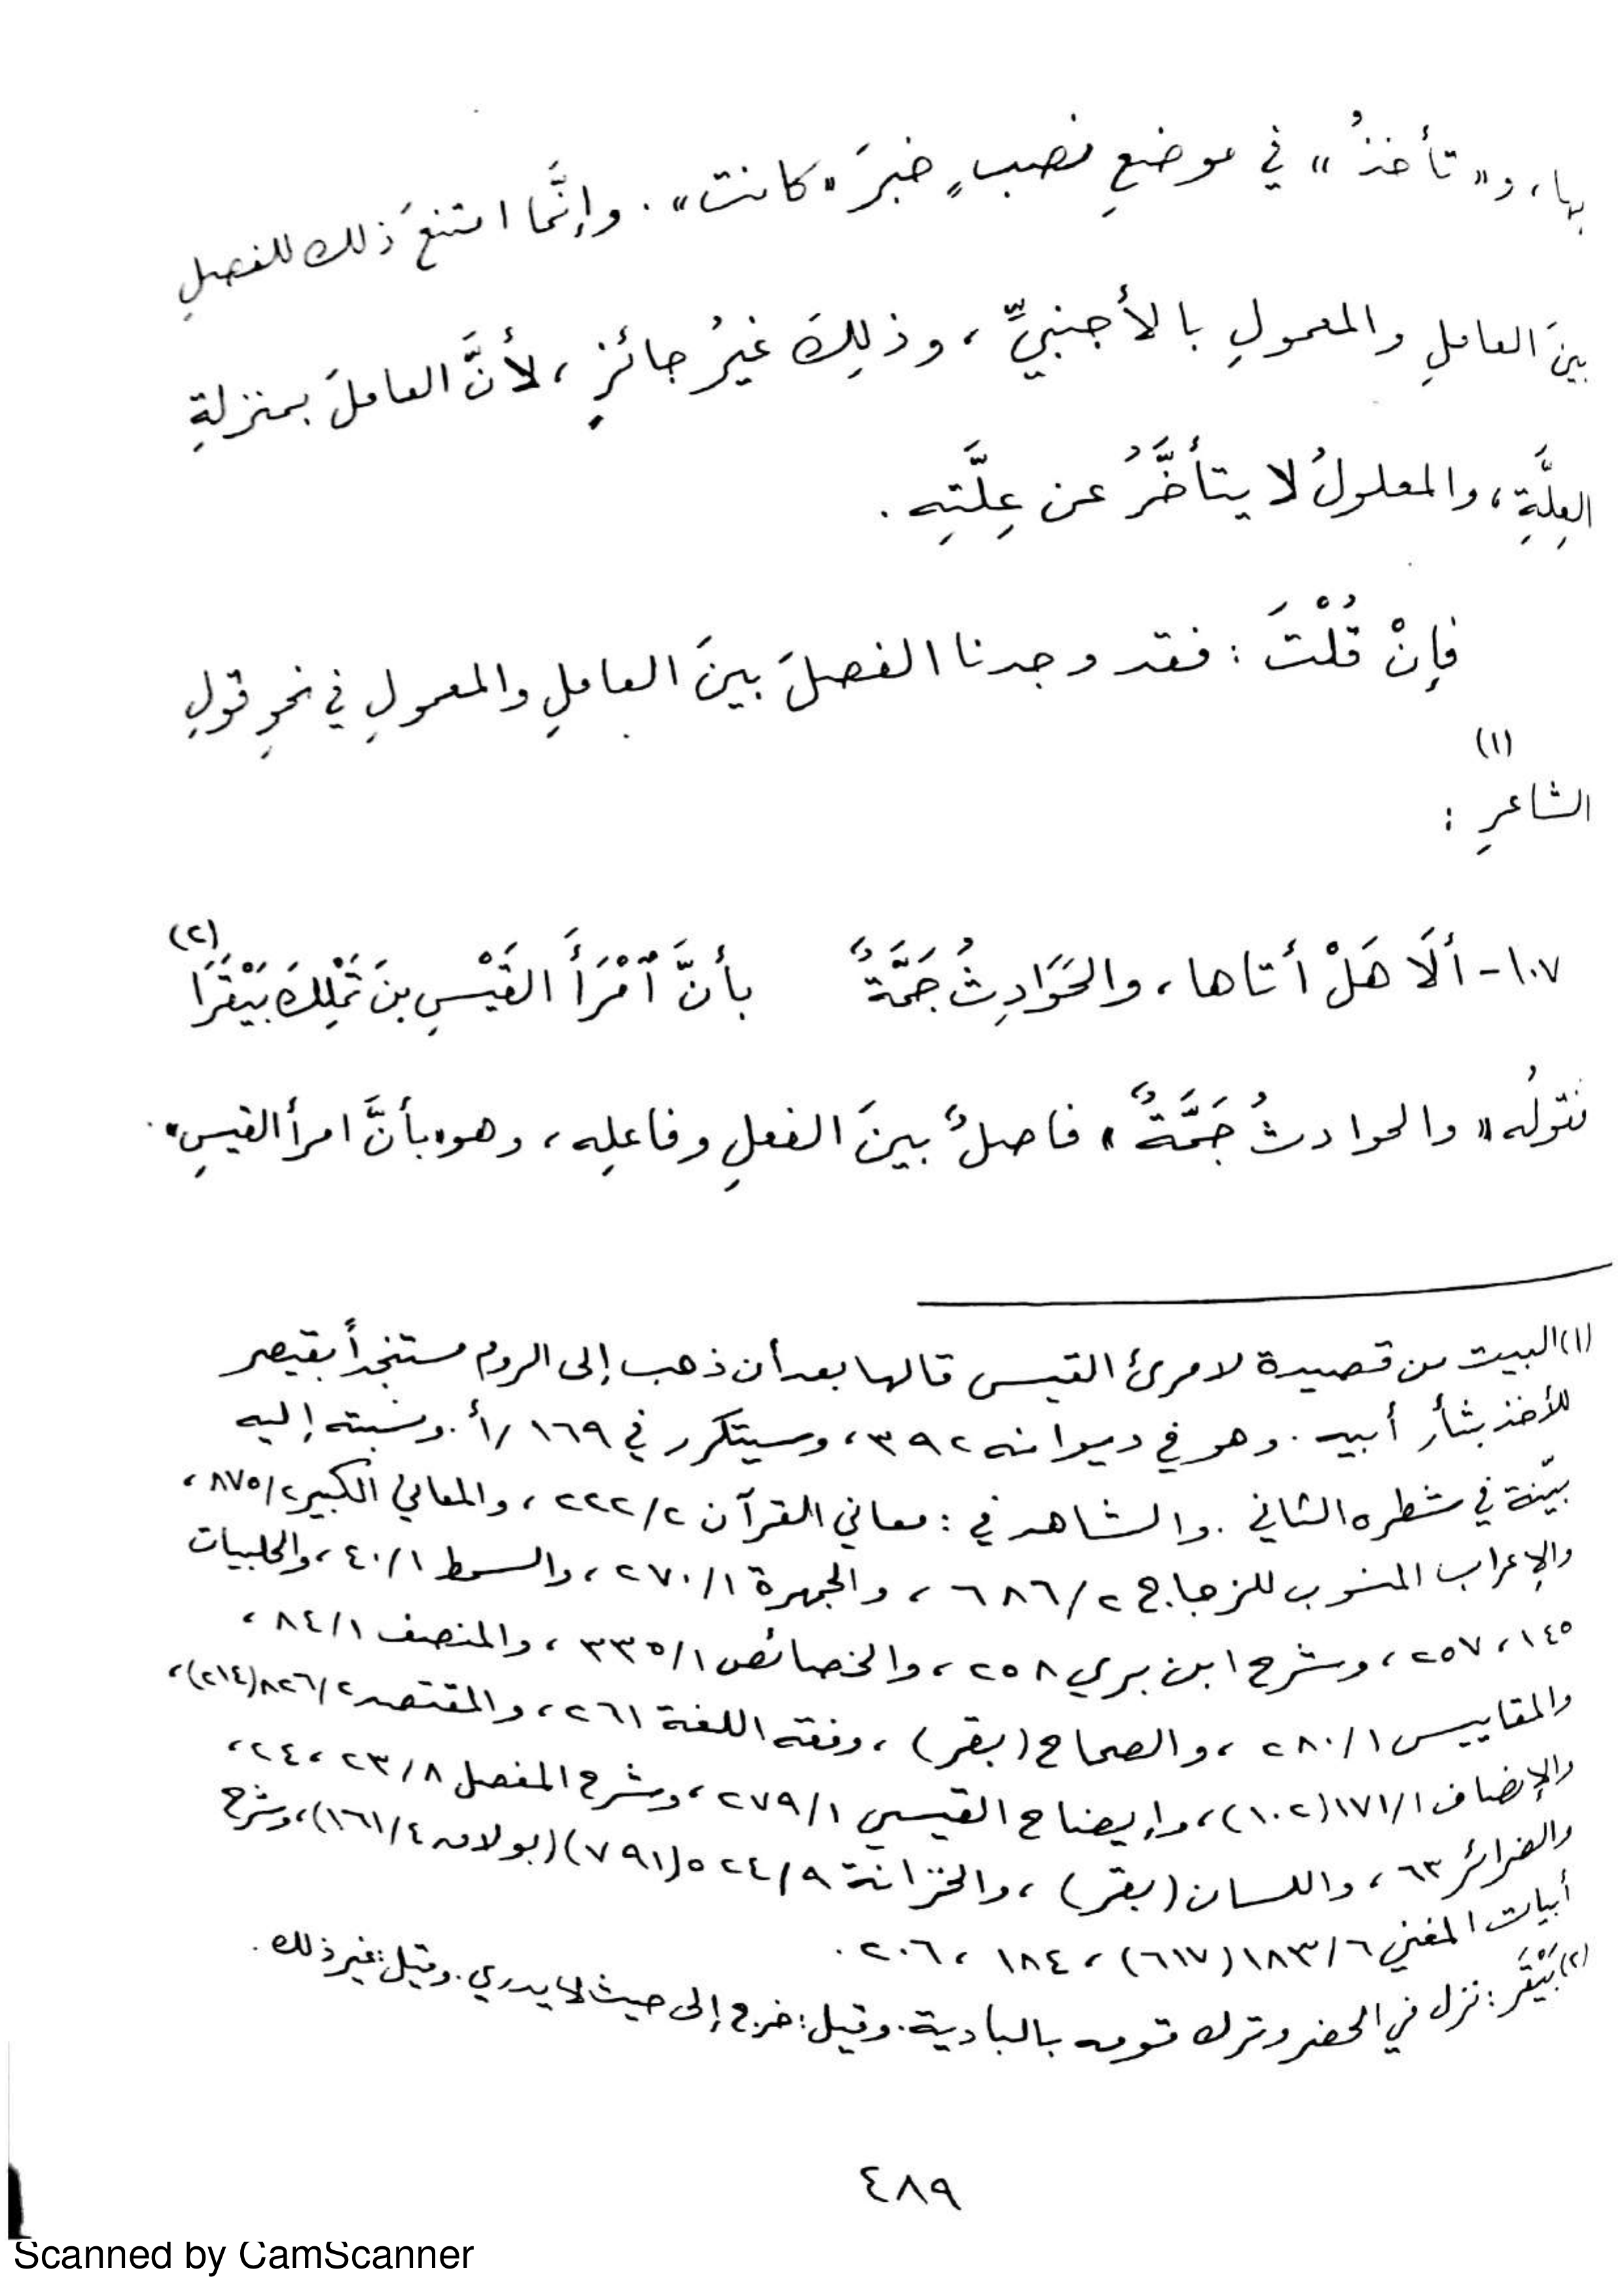 بها، و« تأخذُ » في موضعِ نصبٍ خبرَ « كانت » . وإنَّما امتنعَ ذلك للفصلِ
بينَ العاملِ والمعمولِ بالأجنبيِّ ، وذلِكَ غيرُ جائزٍ ، لأنَّ العاملَ بمنزلةِ
العِلَّةِ ، والمعلولُ لا يتأخَّرُ عن عِلَّتِه .
فإنْ قُلْتَ : فقد وجدنا الفصلَ بينَ العاملِ والمعمولِ في نحوِ قولِ
الشاعرِ (١) :
١٠٧- ألَا هَلْ أتاها ، والحَوَادِثُ جَمَّةٌ بأنَّ ٱمْرَأَ القَيْسِ بنَ تَمْلِكَ بَيْقَرَا (٢)
فقولُه « والحوادثُ جَمَّةٌ » فاصلٌ بينَ الفعلِ وفاعلِه ، وهو « بأنَّ امرأ القيسِ » .
(١) البيت من قصيدة لامرئ القيس قالها بعد أن ذهب إلى الروم مستنجداً بقيصر
للأخذ بثأر أبيه . وهو في ديوانه ٣٩٢ ، وسيتكرر في ١٦٩/أ . ونسبته إليه
بيّنة في شطره الثاني . والشاهد في : معاني القرآن ٢٢٢/٢ ، والمعاني الكبير ٨٧٥/٢ ،
والإعراب المنسوب للزجاج ٦٨٦/٢ ، والجمهرة ٢٧٠/١ ، والسمط ٤٠/١ ، والحلبيات
١٤٥ ، ٢٥٧ ، وشرح ابن بري ٢٥٨ ، والخصائص ٣٣٥/١ ، والمنصف ٨٤/١ ،
والمقاييس ٢٨٠/١ ، والصحاح (بقر) ، وفقه اللغة ٢٦١ ، والمقتصد ٨٢٦/٢ (٢١٤) ،
والإنصاف ١٧١/١ (١٠٢) ، وإيضاح القيسي ٢٧٩/١ ، وشرح المفصل ٢٣/٨ ، ٢٤ ،
والضرائر ٦٣ ، واللسان (بقر) ، والخزانة ٥٢٤/٩ (٧٩١) (بولاق ١٦١/٤) ، وشرح
أبيات المغني ١٨٣/٦ (٦١٧) ، ١٨٤ ، ٢٠٦ .
(٢) بَيْقَر : نزل في الحضر وترك قومه بالبادية . وقيل : خرج إلى حيث لا يدري . وقيل : غير ذلك .
٤٨٩
Scanned by CamScanner